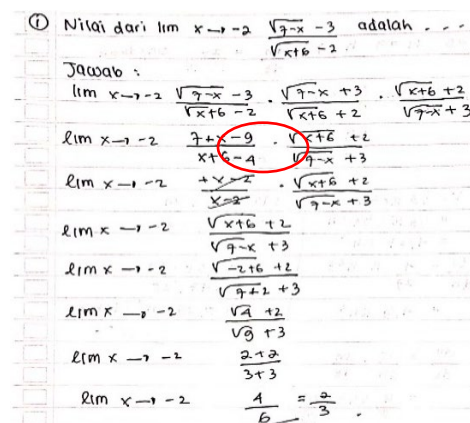 ① Nilai dari lim x→-2 (√7-x - 3)/(√x+6 - 2) adalah ....
Jawab :
lim x→-2 (√7-x - 3)/(√x+6 - 2) · (√7-x + 3)/(√x+6 + 2) · (√x+6 + 2)/(√7-x + 3)
lim x→-2 (7+x-9)/(x+6-4) · (√x+6 + 2)/(√7-x + 3)
lim x→-2 (+x-2)/(x-2) · (√x+6 + 2)/(√7-x + 3)
lim x→-2 (√x+6 + 2)/(√7-x + 3)
lim x→-2 (√-2+6 + 2)/(√7+2 + 3)
lim x→-2 (√4 + 2)/(√9 + 3)
lim x→-2 (2+2)/(3+3)
lim x→-2 4/6 = 2/3.